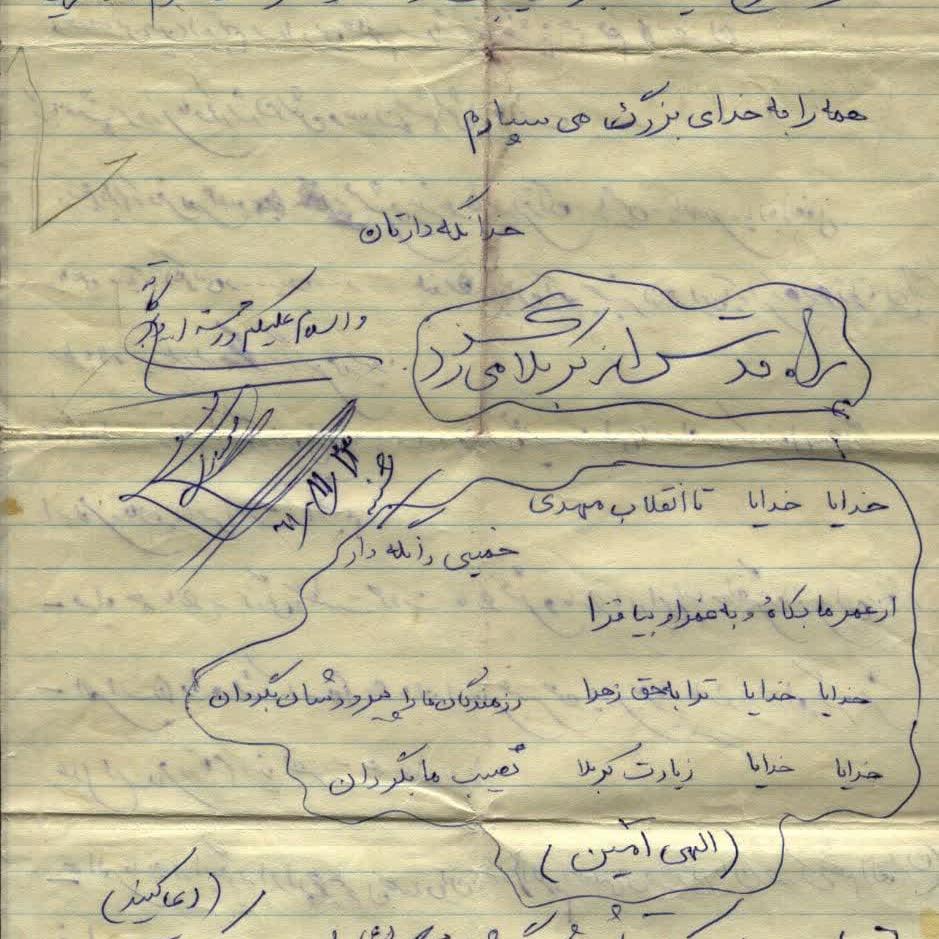 همه را به خدای بزرگ می سپارم
خدا نگه دارتان
والسلام علیکم و رحمته الله و برکاته
راه قدس از کربلا می گذرد
خدایا خدایا تا انقلاب مهدی
خمینی را نگه دار
از عمر ما بکاهُ و به عمر او بیافزا
خدایا خدایا ترا به حق زهرا رزمندگان ما را پیروزشان بگردان
خدایا خدایا زیارت کربلا نصیب ما بگردان
(الهی آمین)
(دعا کنید)